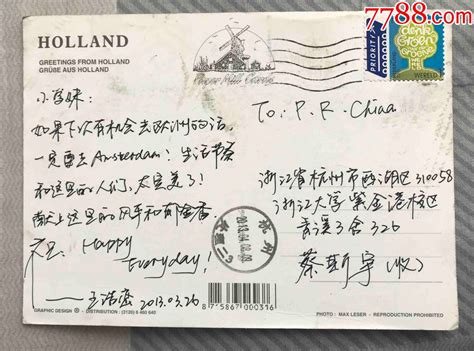 7788.com
HOLLAND
GREETINGS FROM HOLLAND
GRÜSSE AUS HOLLAND
PRIORITY
denk
Groen
WERELD
To: P. R. China
小学妹:
如果下次有机会去欧洲的话,
一定要去Amsterdam! 生活节奏
和这里的人们,太完美了!
献上这里的风车和郁金香
Happy
Everyday!
2013.03.26
浙江省杭州市西湖区310058
浙江大学紫金港校区
舍326
蔡斯宇(收)
杭州
GRAPHIC DESIGN
DISTRIBUTION
8 715867 000316
PHOTO: MAX LESER - REPRODUCTION PROHIBITED